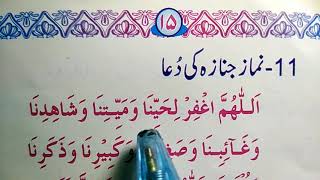 ۱۵
11-نماز جنازہ کی دُعا
اَللّٰهُمَّ اغْفِرْ لِحَيِّنَا وَمَيِّتِنَا وَشَاهِدِنَا
وَغَائِبِنَا وَكَبِيْرِنَا وَذَكَرِنَا